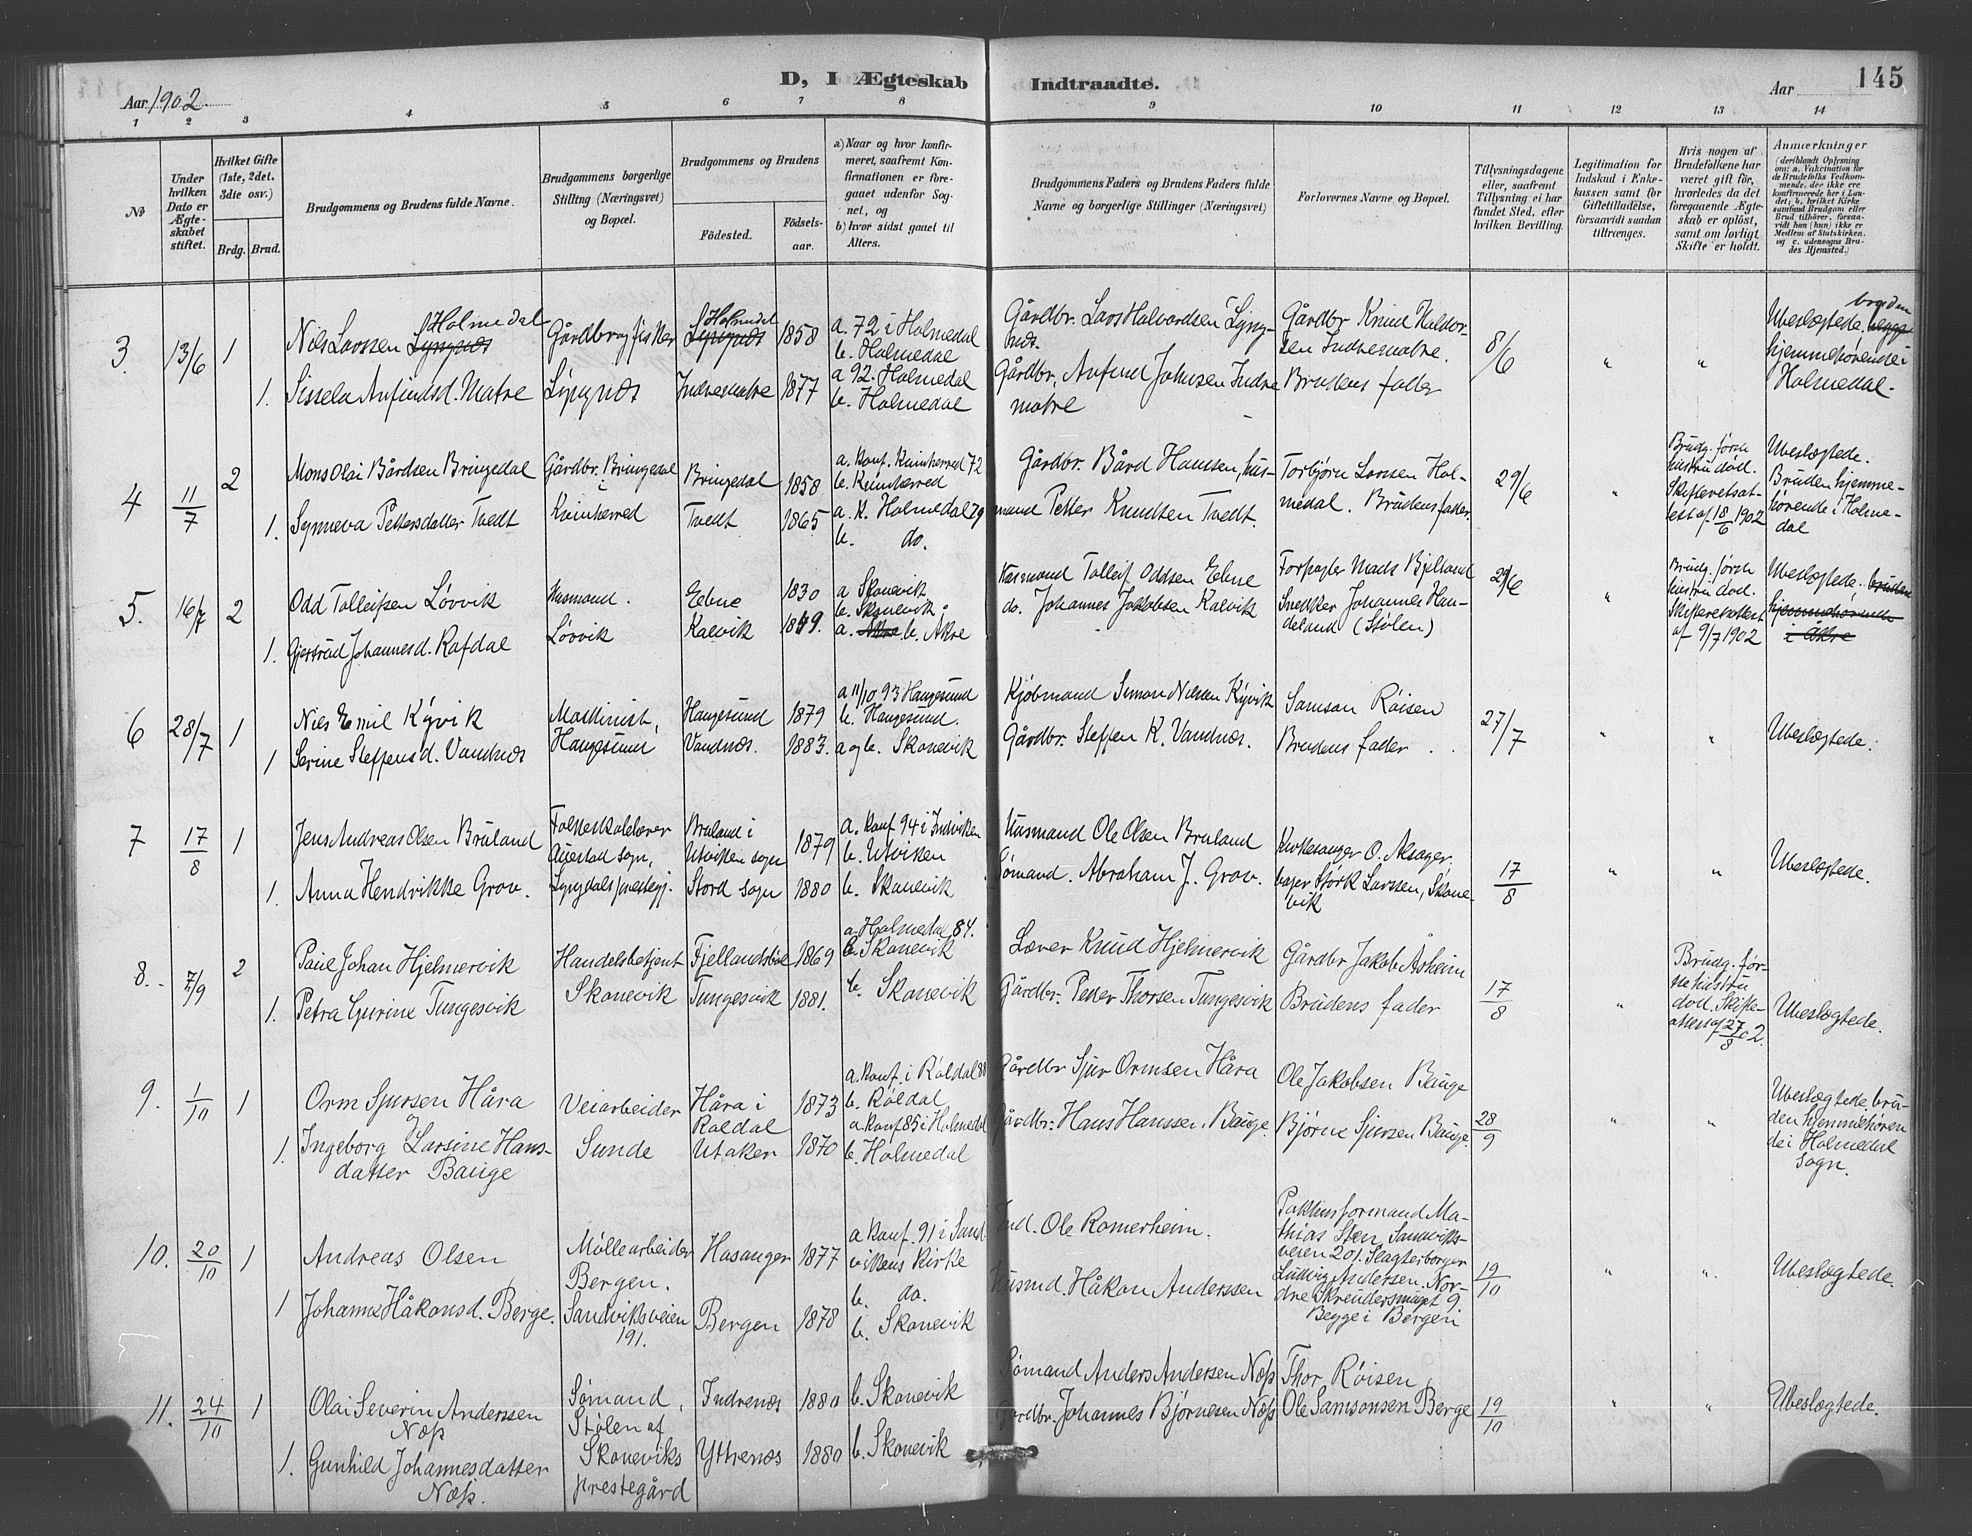 D, I Ægteskab Indtraadte.
145
Aar 1902.
Aar
1 2 3 4 5 6 7 8 9 10 11 12 13 14
No
Under hvilken Dato er Ægteskabet stiftet.
Hvilket Gifte (1ste, 2det, 3die osv.)
Brdg. Brud.
Brudgommens og Brudens fulde Navne.
Brudgommens borgerlige Stilling (Næringsvei) og Bopæl.
Brudgommens og Brudens
Födested.
Födselsaar.
a) Naar og hvor konfirmeret, saafremt Konfirmationen er foregaaet udenfor Sognet, og
b) hvor sidst gaaet til Alters.
Brudgommens Faders og Brudens Faders fulde Navne og borgerlige Stillinger (Næringsvei)
Forlovernes Navne og Bopæl.
Tillysningsdagene eller, saafremt Tillysning ei har fundet Sted, efter hvilken Bevilling.
Legitimation for Indskud i Enkekassen samt for Giftetilladelse, forsaavidt saadan tiltrænges.
Hvis nogen af Brudefolkene har været gift för, hvorledes da det foregaaende Ægteskab er oplöst, samt om lovligt Skifte er holdt.
Anmærkninger
(deriblandt Oplysning om: a. Vakcination for de Brudefolks Vedkommende, der ikke ere konfirmerede her i Landet; b. hvilket Kirkesamfund Brudgom eller Brud tilhörer, forsaavidt han (hun) ikke er Medlem af Statskirken, og c. udensogns Brudes Hjemsted.)
3. 13/6 1
Nils Larssen Lyngnes Holmedal
Gårdbr og fisker
Lyngnes Holmedal 1858
a. 72 i Holmedal
b. Holmedal
Gårdbr. Lars Halvardsen Lyngnes.
Gårdbr Knud Haldorsen Indrematre.
8/6 " "
Ubeslægtede. begge bruden hjemmehørende i Holmedal.
1. Sissela Anfindsd. Matre
Lyngnes
Indrematre 1877
a 92. Holmedal
b. Holmedal
Gårdbr. Anfind Johnsen Indre matre
Brudens fader
4 11/7 2
Mons Olai Bårdsen Bringedal
Gårdbr. Bringedal i Kvinherred
Bringedal 1858
a. Konf. Kvinherred 72
b. Kvinherred
Gårdbr. Bård Hansen, husmand Petter Knudsen Tvedt.
Torbjørn Larssen Holmedal. Brudens fader.
29/6 "
Brudg. første hustru død. Skifteretsattest af 18/6 1902
Ubeslægtede. Bruden hjemmehørende i Holmedal
1. Synneva Pettersdatter Tvedt
Tvedt 1865
a. K. Holmedal 79
b. do.
5. 16/7 2
Odd Tolleifsen Løvvik
Husmand. Løvvik
Ebne 1830
a Skonevik
b. Skonevik
Husmand Tolleif Oddsen Ebne
do. Johannes Jakobsen Kalvik
Forpagter Mads Bjelland
Snedker Johannes Handeland (Stølen)
29/6 "
Brudg. første hustru død. Skifteretsattest af 9/7 1902
Ubeslægtede. bruden hjemmehørende i Åkre
1. Gjertrud Johannesd. Rafdal
Kalvik 1849.
a. Åkre b. Åkre
6 28/7 1
Nils Emil Kyvik
Maskinist, Haugesund
Haugesund 1879
a 11/10 93 Haugesund
b. Haugesund.
Kjøbmand Simon Nilsen Kyvik
Samson Røisen
27/7 " "
Ubeslægtede.
1 Serine Steffensd. Vandnes
Vandnes. 1883.
a og b. Skonevik
Gårdbr. Steffen K. Vandnes.
Brudens fader
7 17/8 1
Jens Andreas Olsen Bruland
Folkeskolelærer Auestad sogn, Lyngdals prestegj.
Bruland i Utviken sogn 1879
a. Konf 94 i Indviken
b. Utviken
Husmand Ole Olsen Bruland
Kirkesanger O. Aksager.
17/8 " "
Ubeslægtede.
1. Anna Hendrikke Grov.
Stord sogn 1880
b. Skonevik
Sømand. Abraham J. Grov.
bager Størk Larssen, Skonevik
8. 7/9 2
Paul Johan Hjelmervik
Handelsbetjent Skonevik
Fjellandsbøl 1869
a. Holmedal 84.
b. Skonevik
Lærer Knud Hjelmervik
Gårdbr Jakob Åsheim
17/8 "
Brudg. første hustru død. Skifteattest af 27/8 02.
Ubeslægtede.
1. Petra Gurine Tungesvik
Tungesvik 1881.
b. Skonevik
Gårdbr. Peder Thorsen Tungesvik
Brudens fader
9. 1/10 1
Orm Sjursen Håra
Veiarbeider Sunde
Håra i Røldal 1873
a. Konf. i Røldal 88
b. Røldal
Gårdbr Sjur Ormsen Håra
Ole Jakobsen Bauge
28/9 " "
Ubeslægtede bruden hjemmehørende i Holmedal Sogn.
1. Ingeborg Larsine Hansdatter Bauge
Utaker 1870
a Konf 85 i Holmedal
b. Holmedal
Gårdbr. Hans Hanssen Bauge.
Bjørne Sjursen Bauge.
10. 20/10 1
Andreas Olsen
Møllearbeider Bergen. Sandviksveien 191.
Hosanger 1877
a Konf. 91 i Sandvikens Kirke
b. do.
Ind. Ole Romerheim.
Pakhusformand Mathias Sten, Sandviksveien 201. Slagterborger Ludvig Andersen, Nordre Skreudersmuget 9. Begge i Bergen
19/10 " "
Ubeslægtede.
1 Johanne Håkonsd. Berge.
Bergen 1878
b. Skonevik
Husmd Håkon Anderssen
11. 24/10 1
Olai Severin Anderssen Næss
Sømand, Stølen af Skoneviks prestegård
Indrenæs 1880
b. Skonevik
Sømand Anders Andersen Næss
Thor Røisen
19/10 " "
Ubeslægtede.
1. Gunhild Johannesdatter Næss.
Yttrenæs 1880
b. Skonevik
Gårdbr. Johannes Bjørnesen Næss
Ole Samsonsen Berge